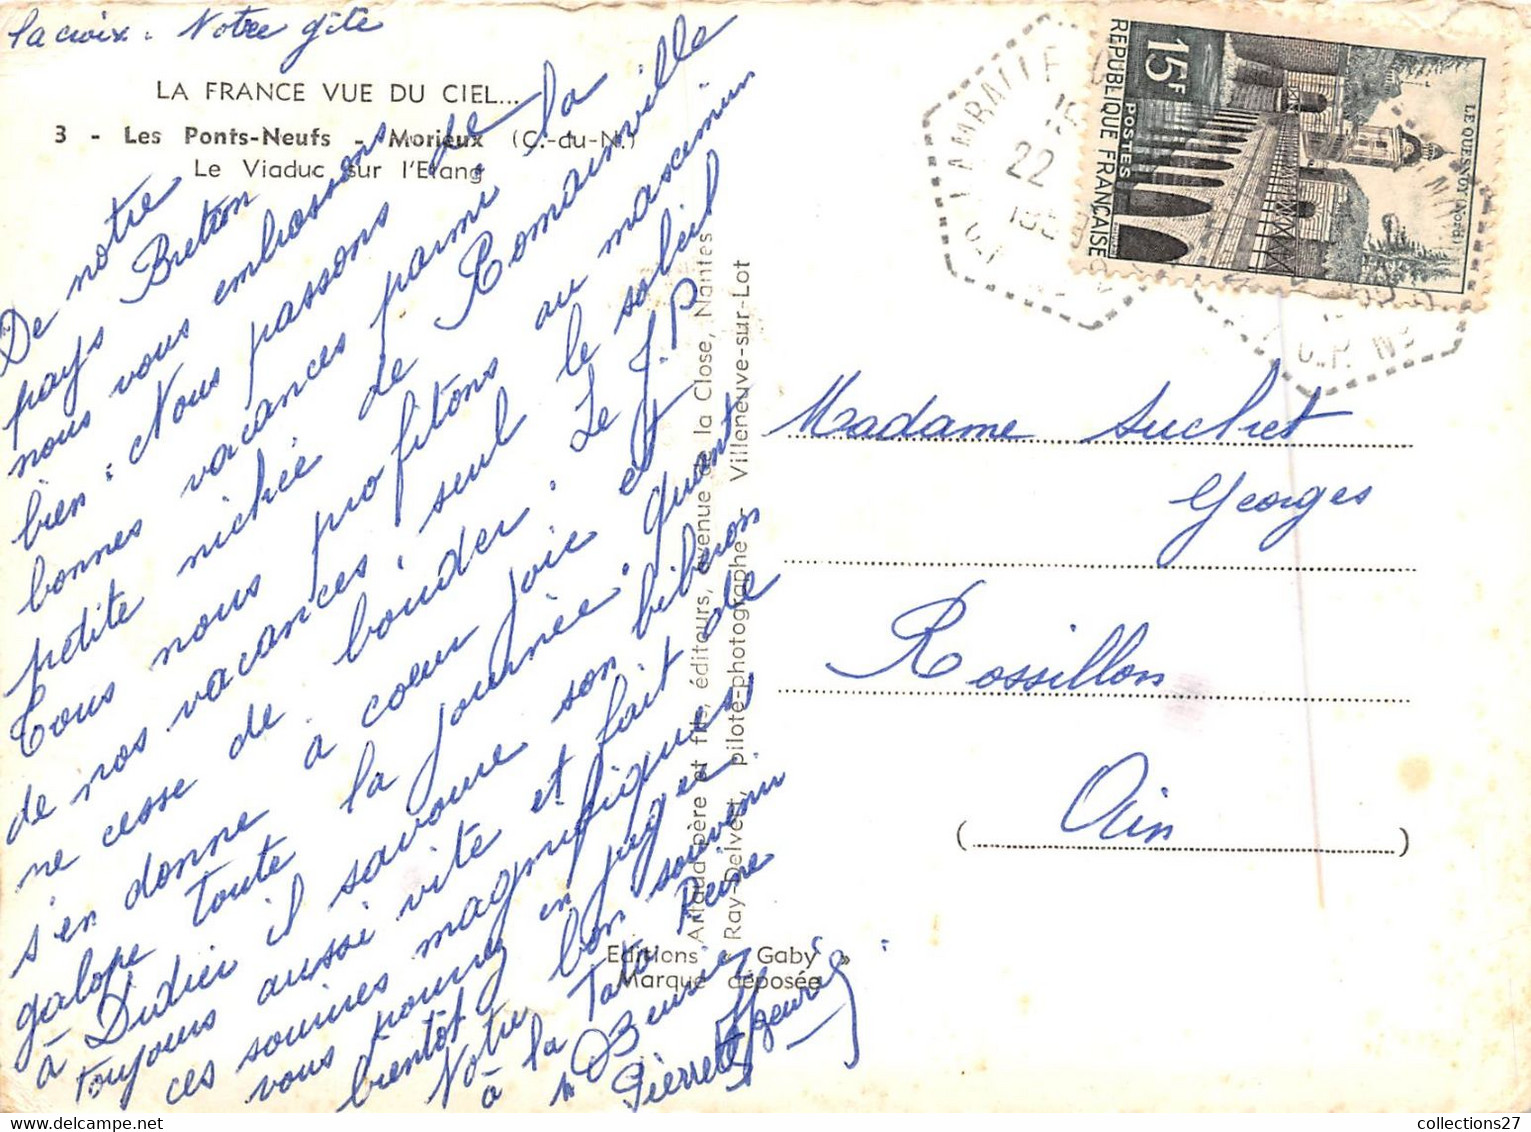 La croix : Notre gîte
LA FRANCE VUE DU CIEL...
3 - Les Ponts-Neufs - Morieux (C.-du-N.)
Le Viaduc sur l'Etang
De notre
pays Breton
nous vous embrassons
bien. Nous passons de
bonnes vacances parmi la
petite nichée de Romainville
Tous nous profitons au maximum
de nos vacances, seul le soleil
ne cesse de bouder. Le J.P
s'en donne à coeur joie et
galope toute la journée. quant
à Didier il savoure son biberon
toujours aussi vite et fait de
ces sourires magnifiques
vous pourrez en juger
bientôt
Notre bon souvenir
à la Tata Reine
Pierrette
Artaud père et fils, éditeurs, avenue de la Close, Nantes
Ray-Delvert, pilote-photographe - Villeneuve-sur-Lot
Editions « Gaby »
Marque déposée
15F
POSTES
REPUBLIQUE FRANÇAISE
LE QUESNOY (Nord)
LAMBALLE
22
C.P. N°
Madame Suchet
Georges
Rossillon
(Ain)
collections27